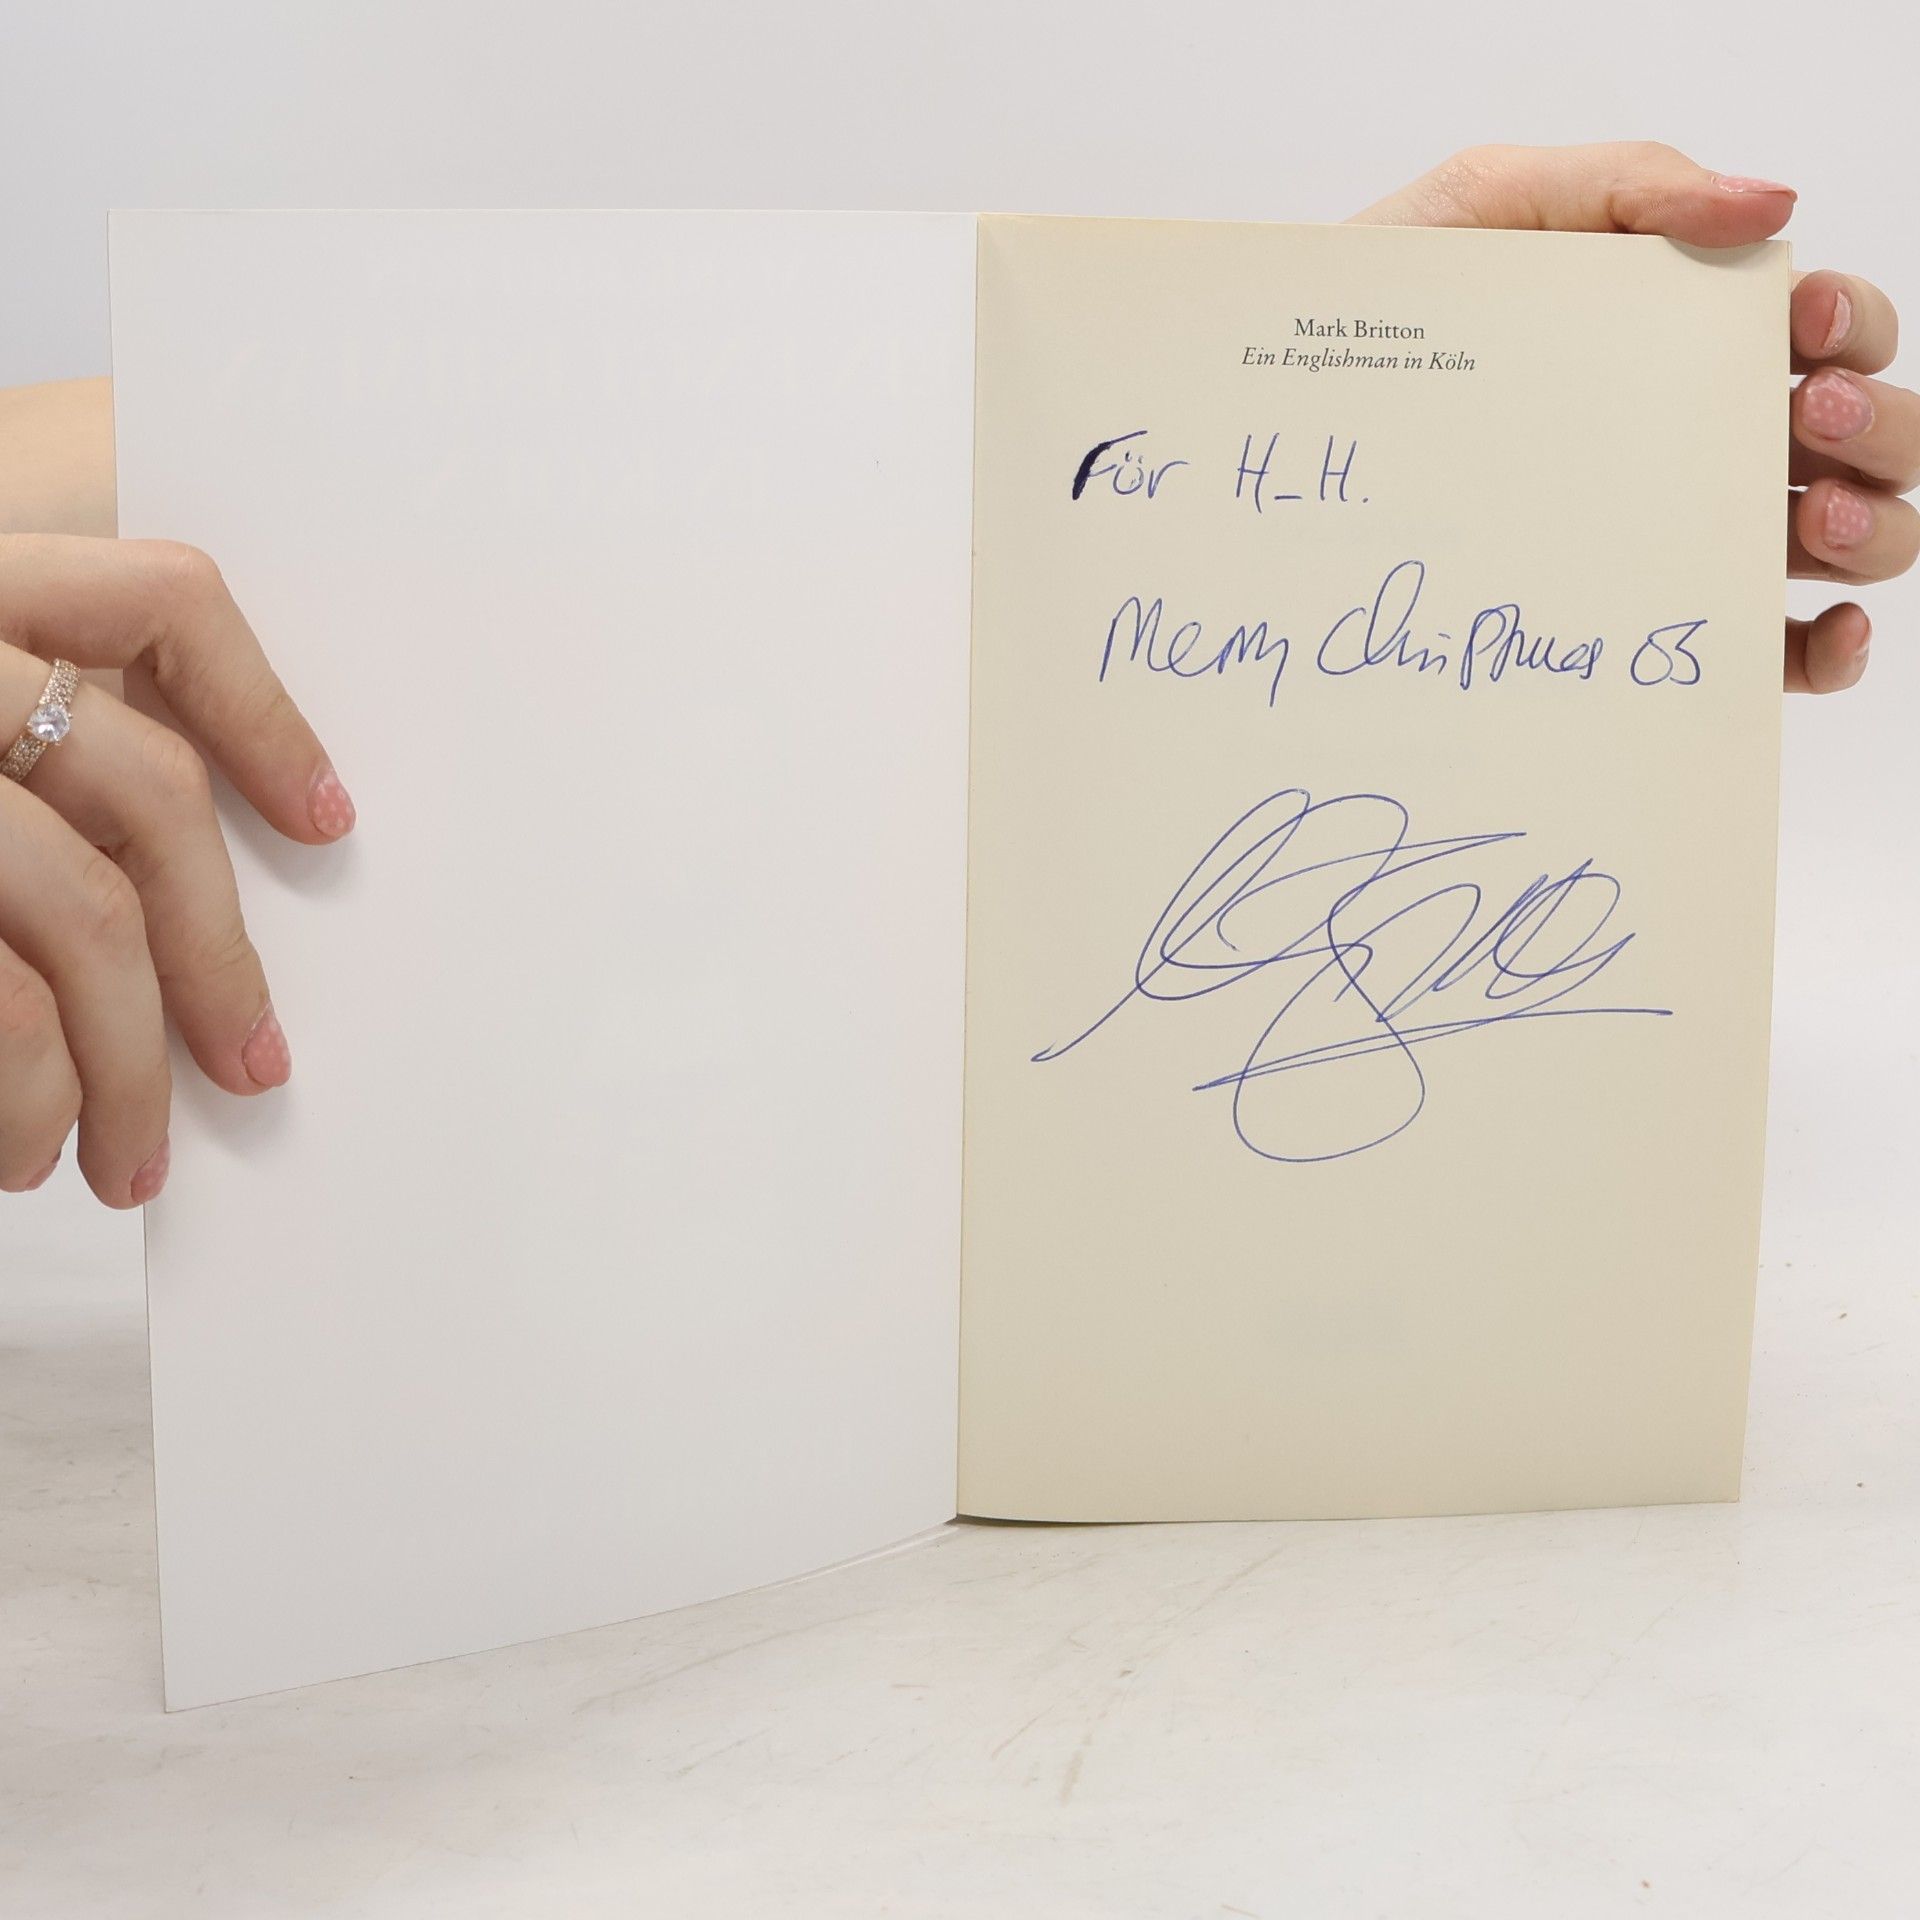 Mark Britton
Ein Englishman in Köln
Für H-H.
Merry Christmas 05